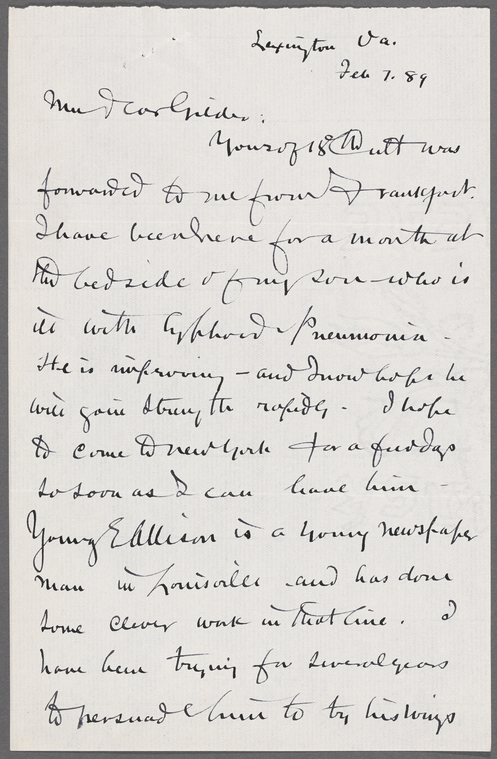 Lexington Va.
Feb 7. 89
My dear Gilder:
Yours of 18th ult was
forwarded to me from Frankfort.
I have been here for a month at
the bedside of my son who is
ill with typhoid Pneumonia -
He is improving - and I now hope he
will gain strength rapidly - I hope
to come to New York for a few days
so soon as I can leave him -
Young E Allison is a young newspaper
man in Louisville and has done
some clever work in that line. I
have been trying for several years
to persuade him to try his wings